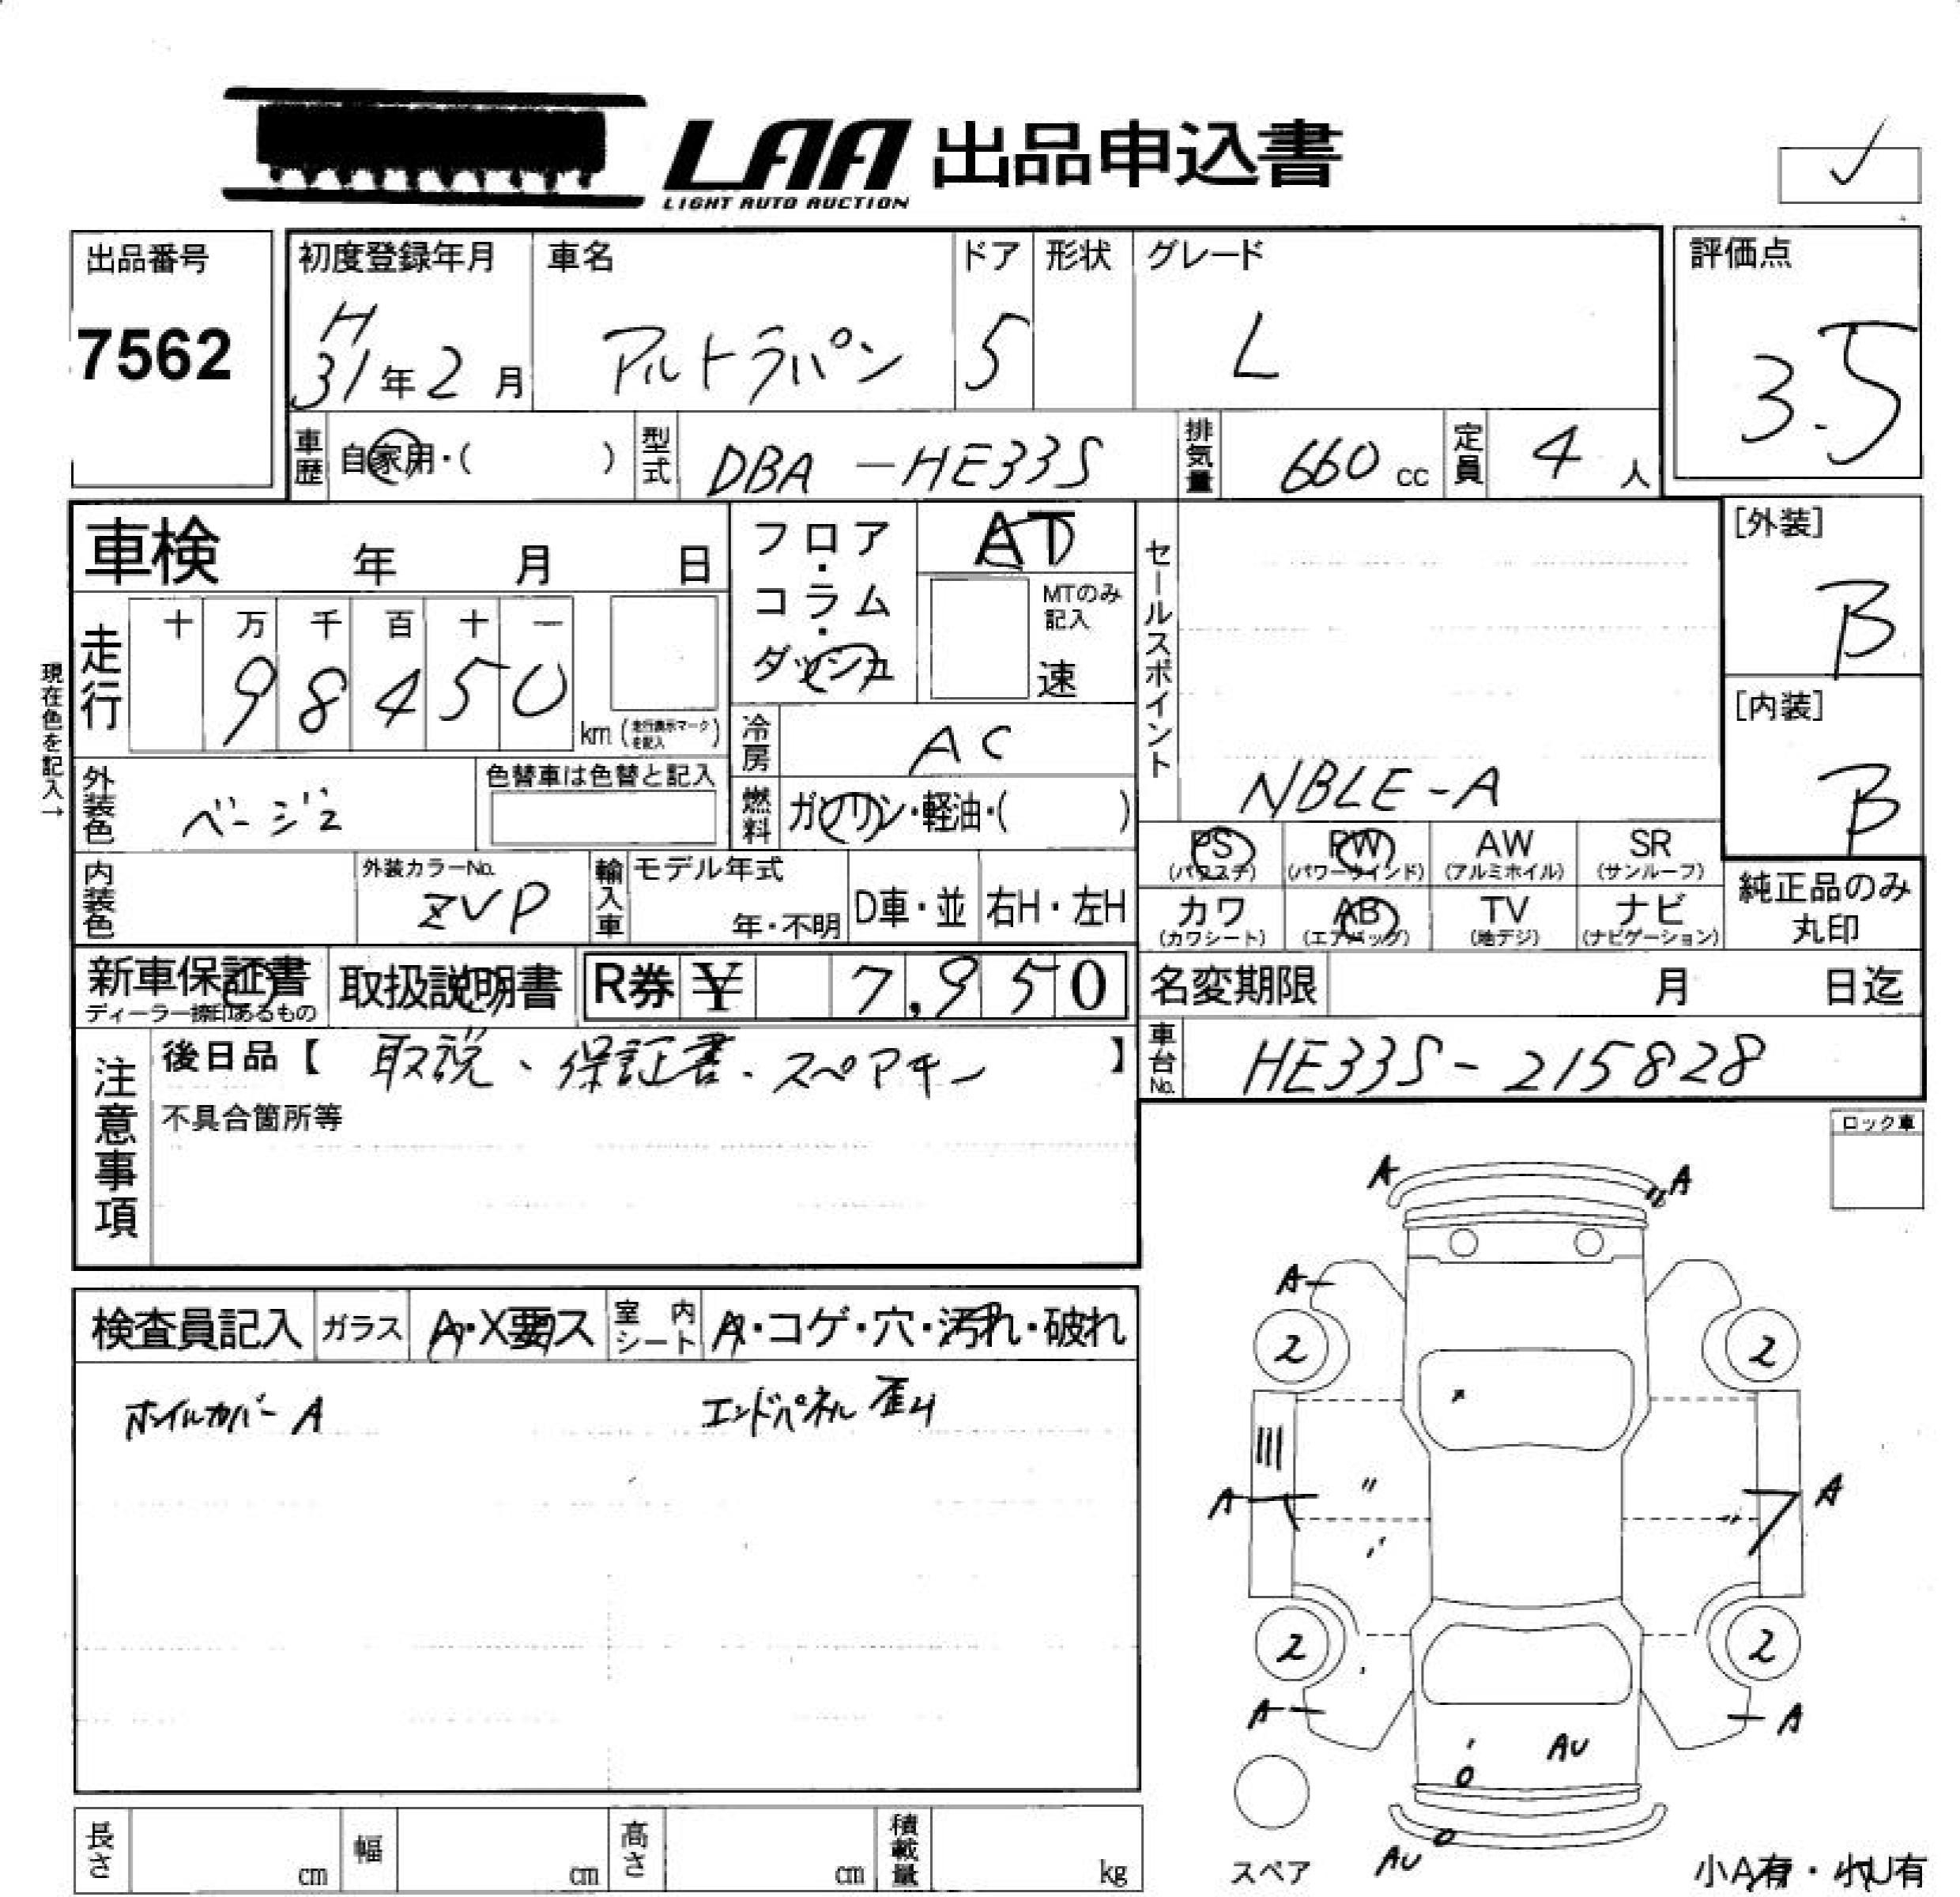 LAA 出品申込書
LIGHT AUTO AUCTION
出品番号
7562
初度登録年月
H
31年2月
車名
アルトラパン
ドア
5
形状
グレード
L
評価点
3.5
車歴
自家用・( )
型式
DBA-HE33S
排気量
660cc
定員
4人
車検 年 月 日
フロア・コラム・ダッシュ
AT
MTのみ記入
速
セールスポイント
NBLE-A
[外装]
B
[内装]
B
現在色を記入→
走行
十 万 千 百 十 一
9 8 4 5 0
km(走行表示マークを記入)
冷房
AC
外装色
ベージュ
色替車は色替と記入
燃料
ガソリン・軽油・( )
PS
(パワステ)
PW
(パワーウインド)
AW
(アルミホイル)
SR
(サンルーフ)
内装色
外装カラーNo.
ZVP
輸入車
モデル年式
年・不明
D車・並
右H・左H
カワ
(カワシート)
AB
(エアバッグ)
TV
(地デジ)
ナビ
(ナビゲーション)
純正品のみ
丸印
新車保証書
ディーラー捺印あるもの
取扱説明書
R券 ¥ 7,950
名変期限 月 日迄
注意事項
後日品【 取説、保証書、スペアキー 】
不具合箇所等
車台No.
HE33S-215828
ロック車
検査員記入
ガラス
A・X要ス
室内シート
A・コゲ・穴・汚れ・破れ
ホイルカバーA
エンドパネル 歪み
A
A
A
2
2
A
A
2
2
A
A
AU
AU
スペア
小A有・小U有
長さ cm
幅 cm
高さ cm
積載量 kg